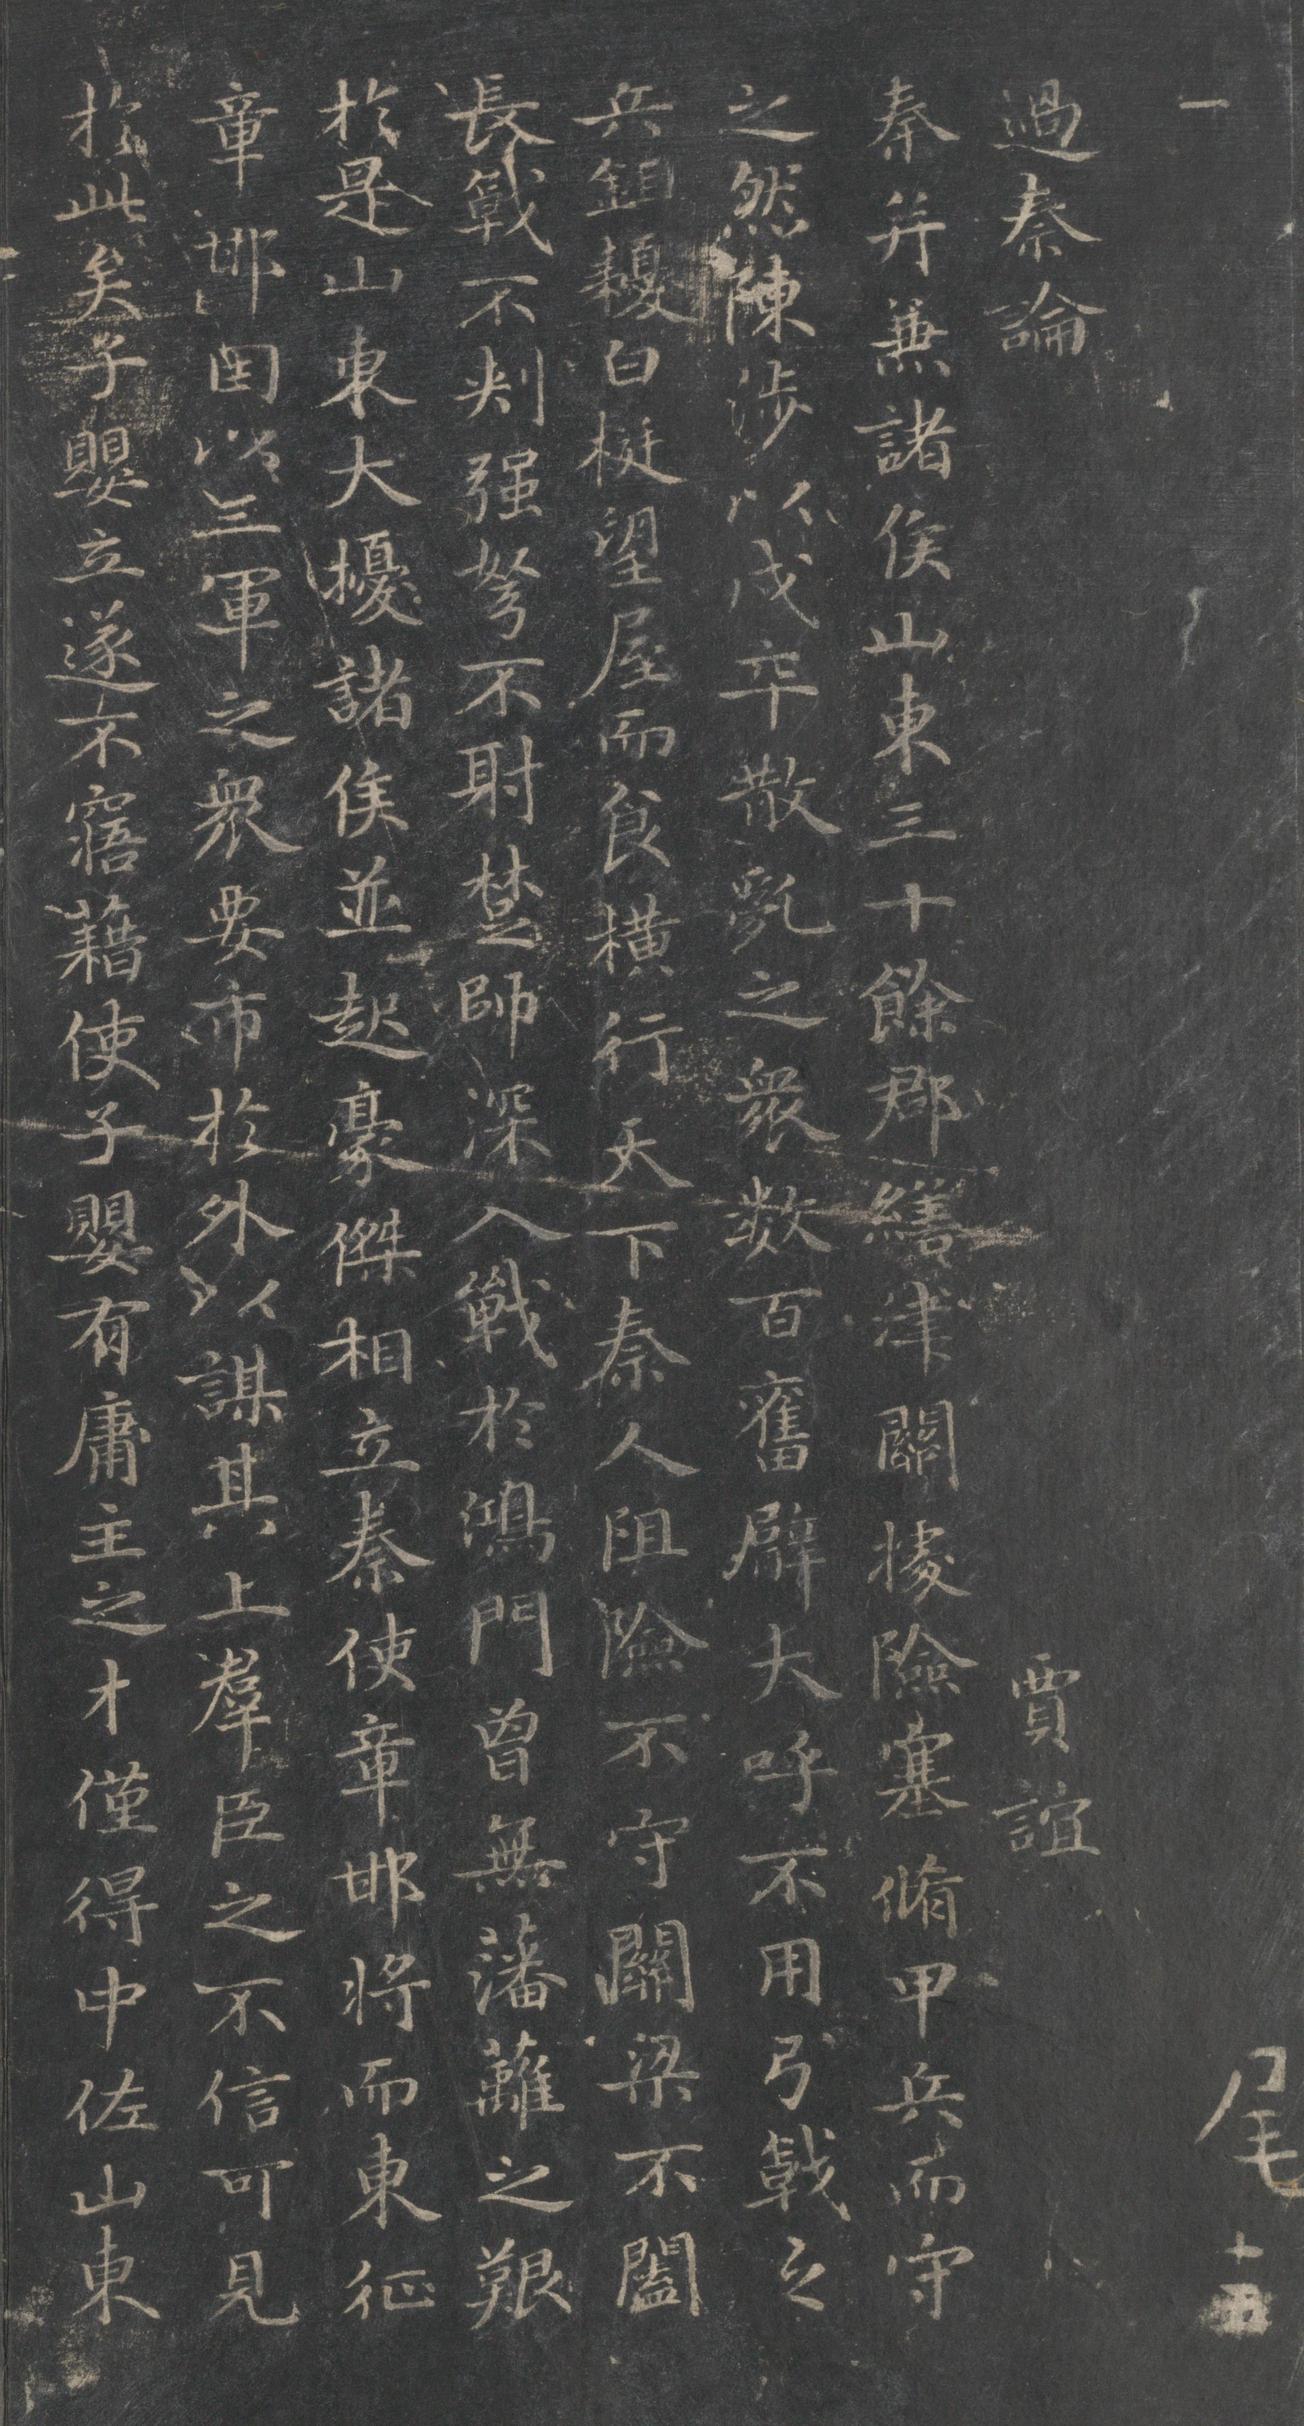 一
尾 十五
過秦論 賈誼
秦并兼諸侯山東三十餘郡繕津關據險塞脩甲兵而守
之然陳涉以戍卒散亂之衆數百奮臂大呼不用弓戟之
兵鉏耰白梃望屋而食橫行天下秦人阻險不守關梁不闔
長戟不刺强弩不射楚師深入戰於鴻門曾無藩蘺之艱
於是山東大擾諸侯並起豪傑相立秦使章邯將而東征
章邯因以三軍之衆要市於外以謀其上羣臣之不信可見
於此矣子嬰立遂不寤藉使子嬰有庸主之才僅得中佐山東